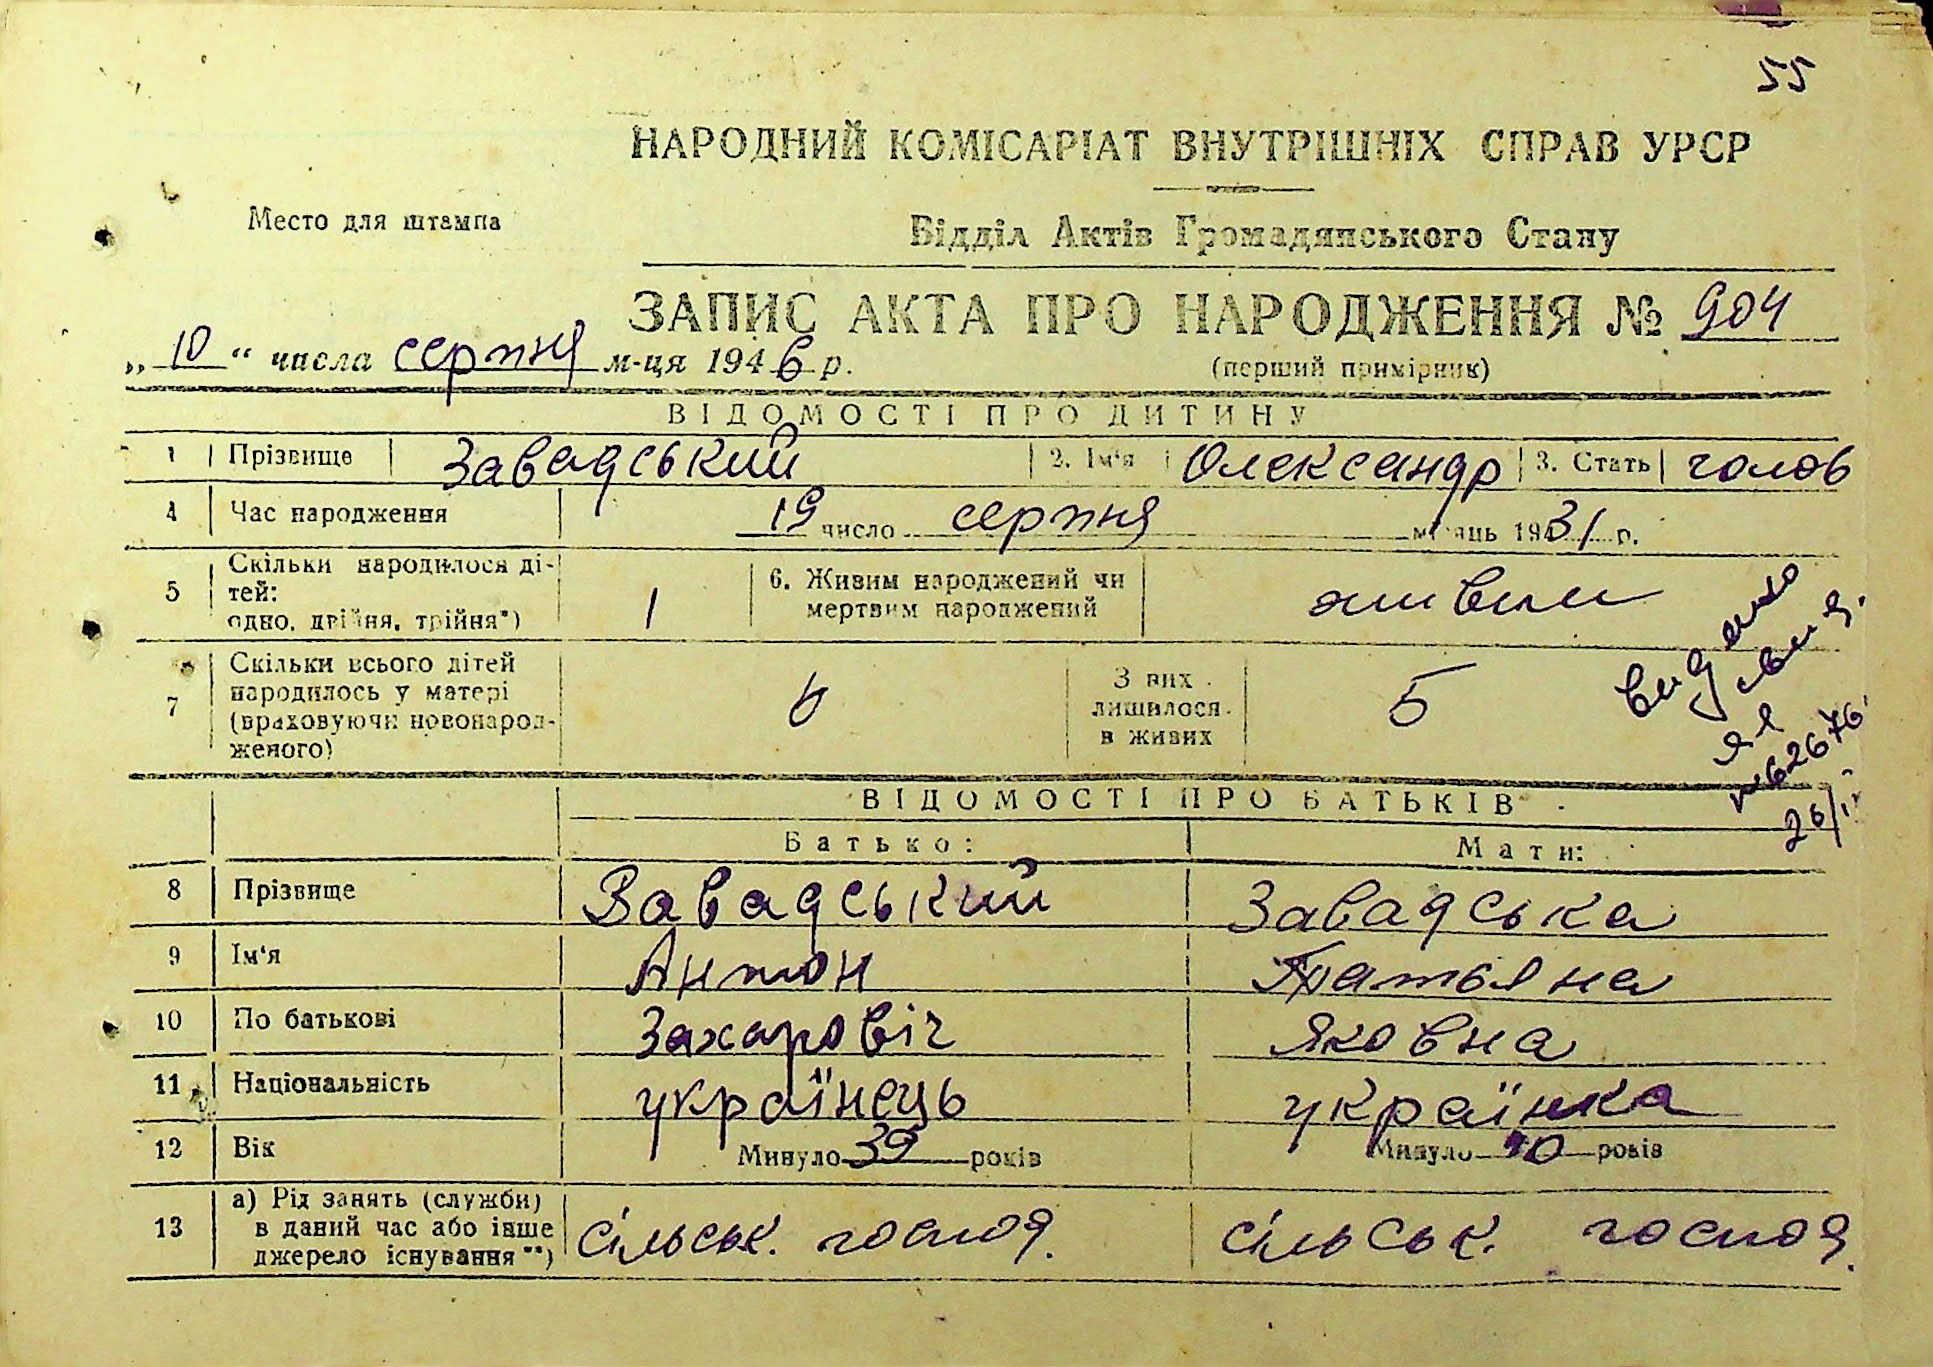 55
НАРОДНИЙ КОМІСАРІАТ ВНУТРІШНІХ СПРАВ УРСР
Место для штампа
Відділ Актів Громадянського Стану
ЗАПИС АКТА ПРО НАРОДЖЕННЯ № 904
„ 10 “ числа серпня м-ця 1946 р.
(перший примірник)
ВІДОМОСТІ ПРО ДИТИНУ
1 Прізвище Завадський 2. Ім‘я Олександр 3. Стать чолов
4 Час народження 19 число серпня місяць 1931 р.
5 Скільки народилося ді-
тей:
одно, двійня, трійня*) 1
6. Живим народжений чи
мертвим народжений живим
7 Скільки всього дітей
народилось у матері
(враховуючи новонарод-
женого) 6
З них
лишилося
в живих 5
видано
ЯЛ
№62676
26/
ВІДОМОСТІ ПРО БАТЬКІВ
Батько: Мати:
8 Прізвище Завадський Завадська
9 Ім‘я Антон Татьяна
10 По батькові Захаровіч Яковна
11 Національність українець українка
12 Вік Минуло 39 років Минуло 40 років
13 а) Рід занять (служби)
в даний час або інше
джерело існування**) сільськ. господ. сільськ. господ.